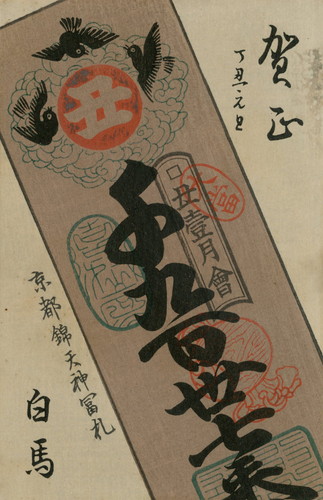 賀正
丁丑元旦
丑
丑壹月會
千九百卅七年
京都錦天神冨札
白馬